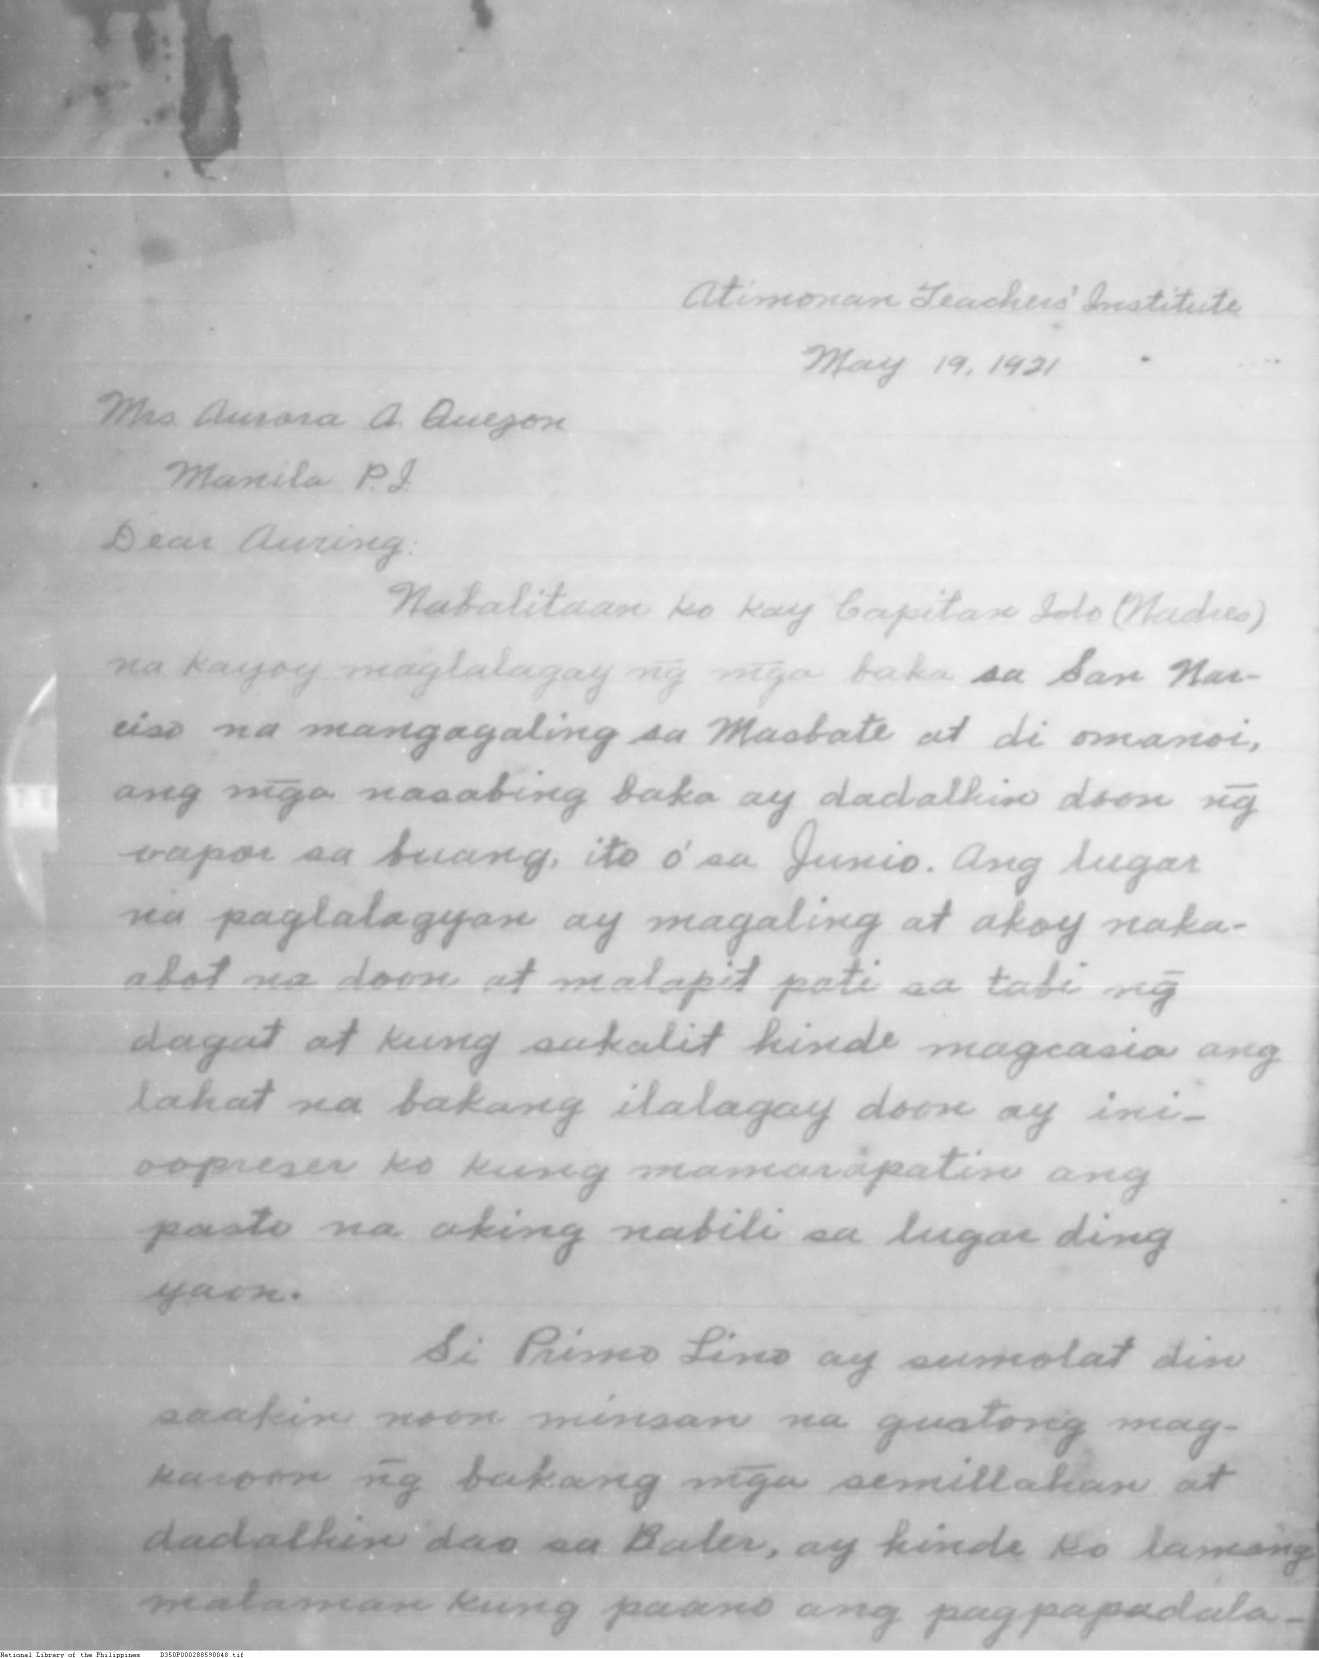 Atimonan Teachers' Institute
May 19, 1921
Mrs. Aurora A. Quezon
Manila P.I.
Dear Auring:
Nabalitaan ko kay Capitan Ido (Nadres)
na kayoy maglalagay n̄g m̄ga baka sa San Nar-
ciso na mangagaling sa Masbate at di omanoi,
ang m̄ga nasabing baka ay dadalhin doon n̄g
vapor sa buang, ito ó sa Junio. Ang lugar
na paglalagyan ay magaling at akoy naka-
abot na doon at malapit pati sa tabi n̄g
dagat at kung sakalit hinde magcasia ang
lahat na bakang ilalagay doon ay ini-
oopreser ko kung mamarapatin ang
pasto na aking nabili sa lugar ding
yaon.
Si Primo Lino ay sumolat din
saakin noon minsan na gustong mag-
karoon n̄g bakang m̄ga semillahan at
dadalhin dao sa Baler, ay hinde ko lamang
malaman kung paano ang pagpapadala-
National Library of the Philippines D350P000288590048.tif